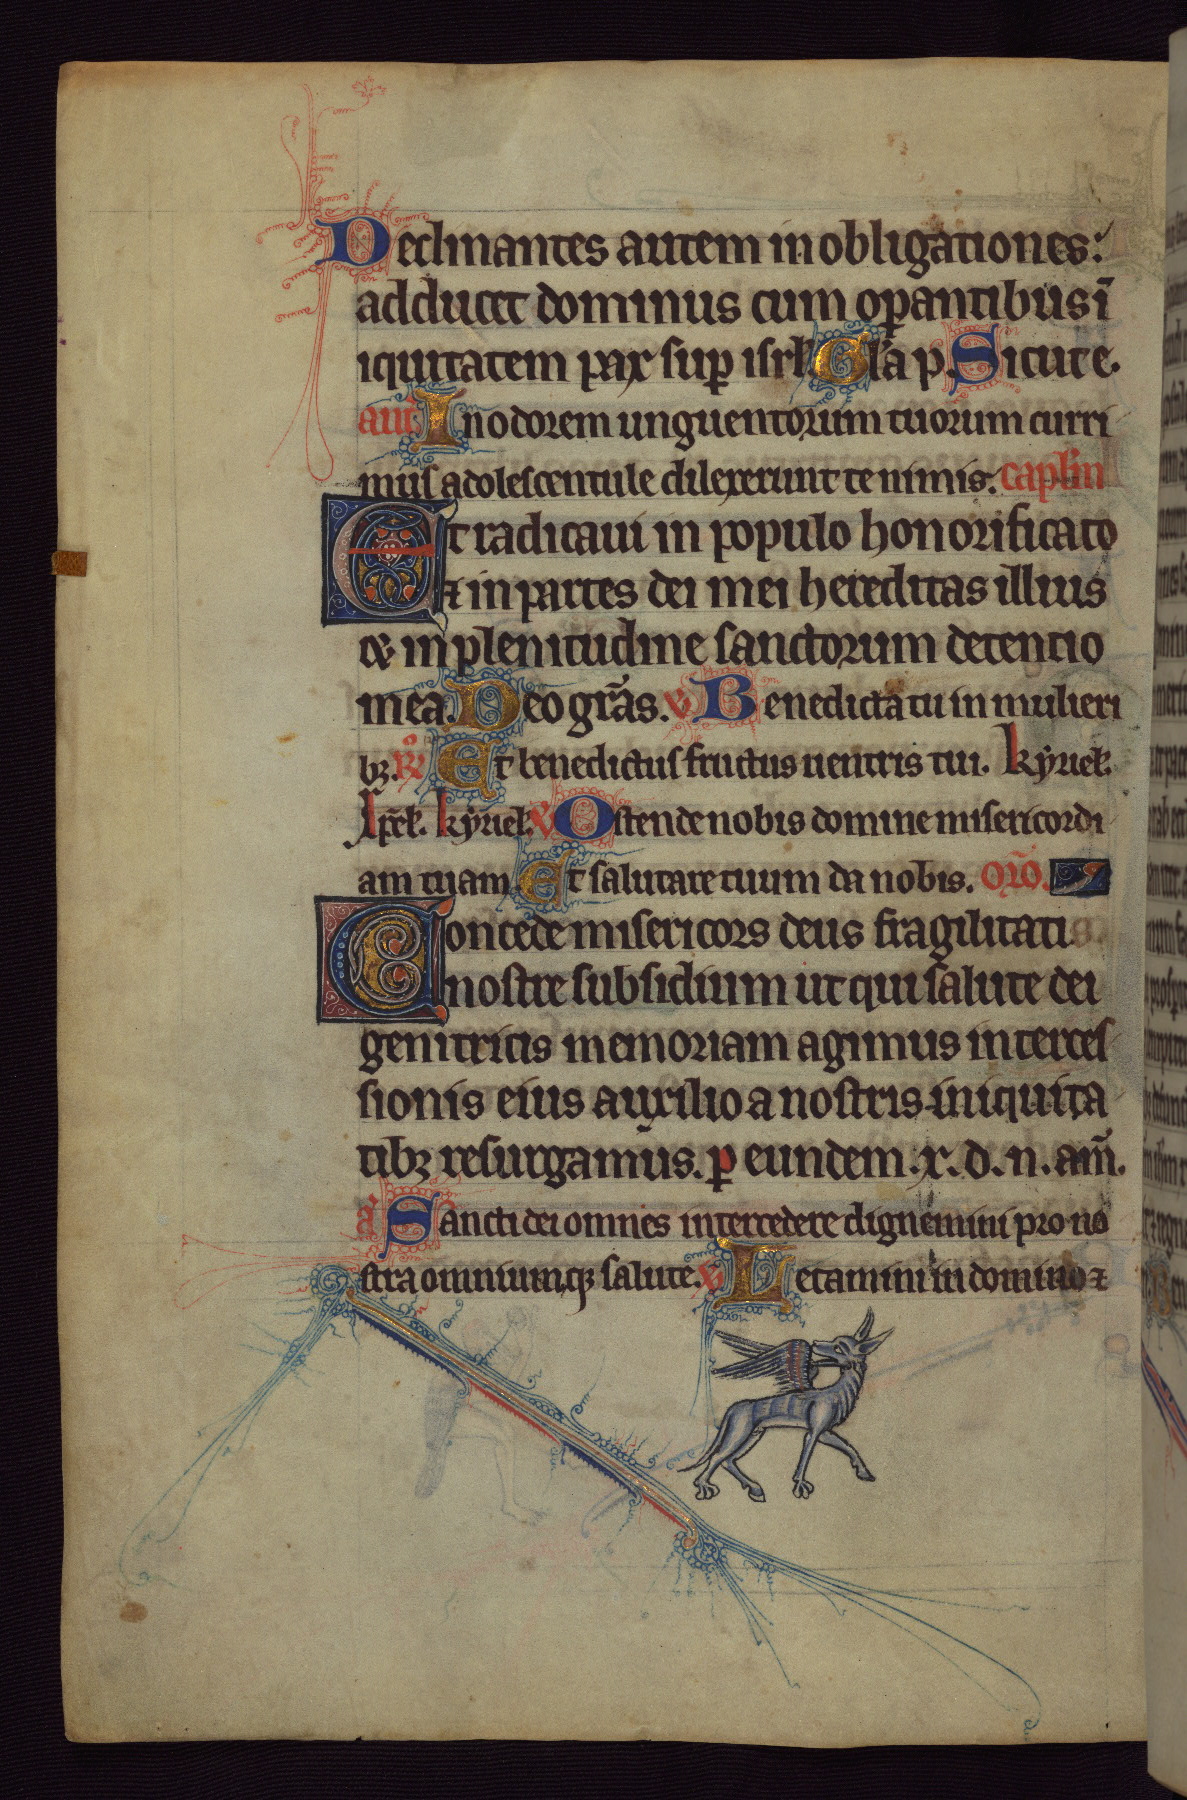 Declinantes autem in obligationes:
adducet dominus cum opantibus ī
iquitatem pax sup isrł. Gła p. Sicut e.
añt In odorem unguentorum tuorum curri
mus adolescentule dilexerunt te nimis. capłm
Et radicaui in populo honorificato
⁊ in partes dei mei hereditas illius
& in plenitudine sanctorum detentio
mea. Deo grās. v Benedicta tu in mulieri
bꝫ. R̃ Et benedictus fructus uentris tui. kyriek.
xp̄ek. kyriek. v Ostende nobis domine misericordi
am tuam Et salutare tuum da nobis. or̃o.
Concede misericors deus fragilitati
nostre subsidium ut qui salute dei
genitricis memoriam agimus interces
sionis eius auxilio a nostris iniquita
tibꝫ resurgamus. p eundem .x. d. n. am̃.
a Sancti dei omnes intercedere dignemini pro no
stra omniumqꝫ salute. v Letamini in domino ⁊